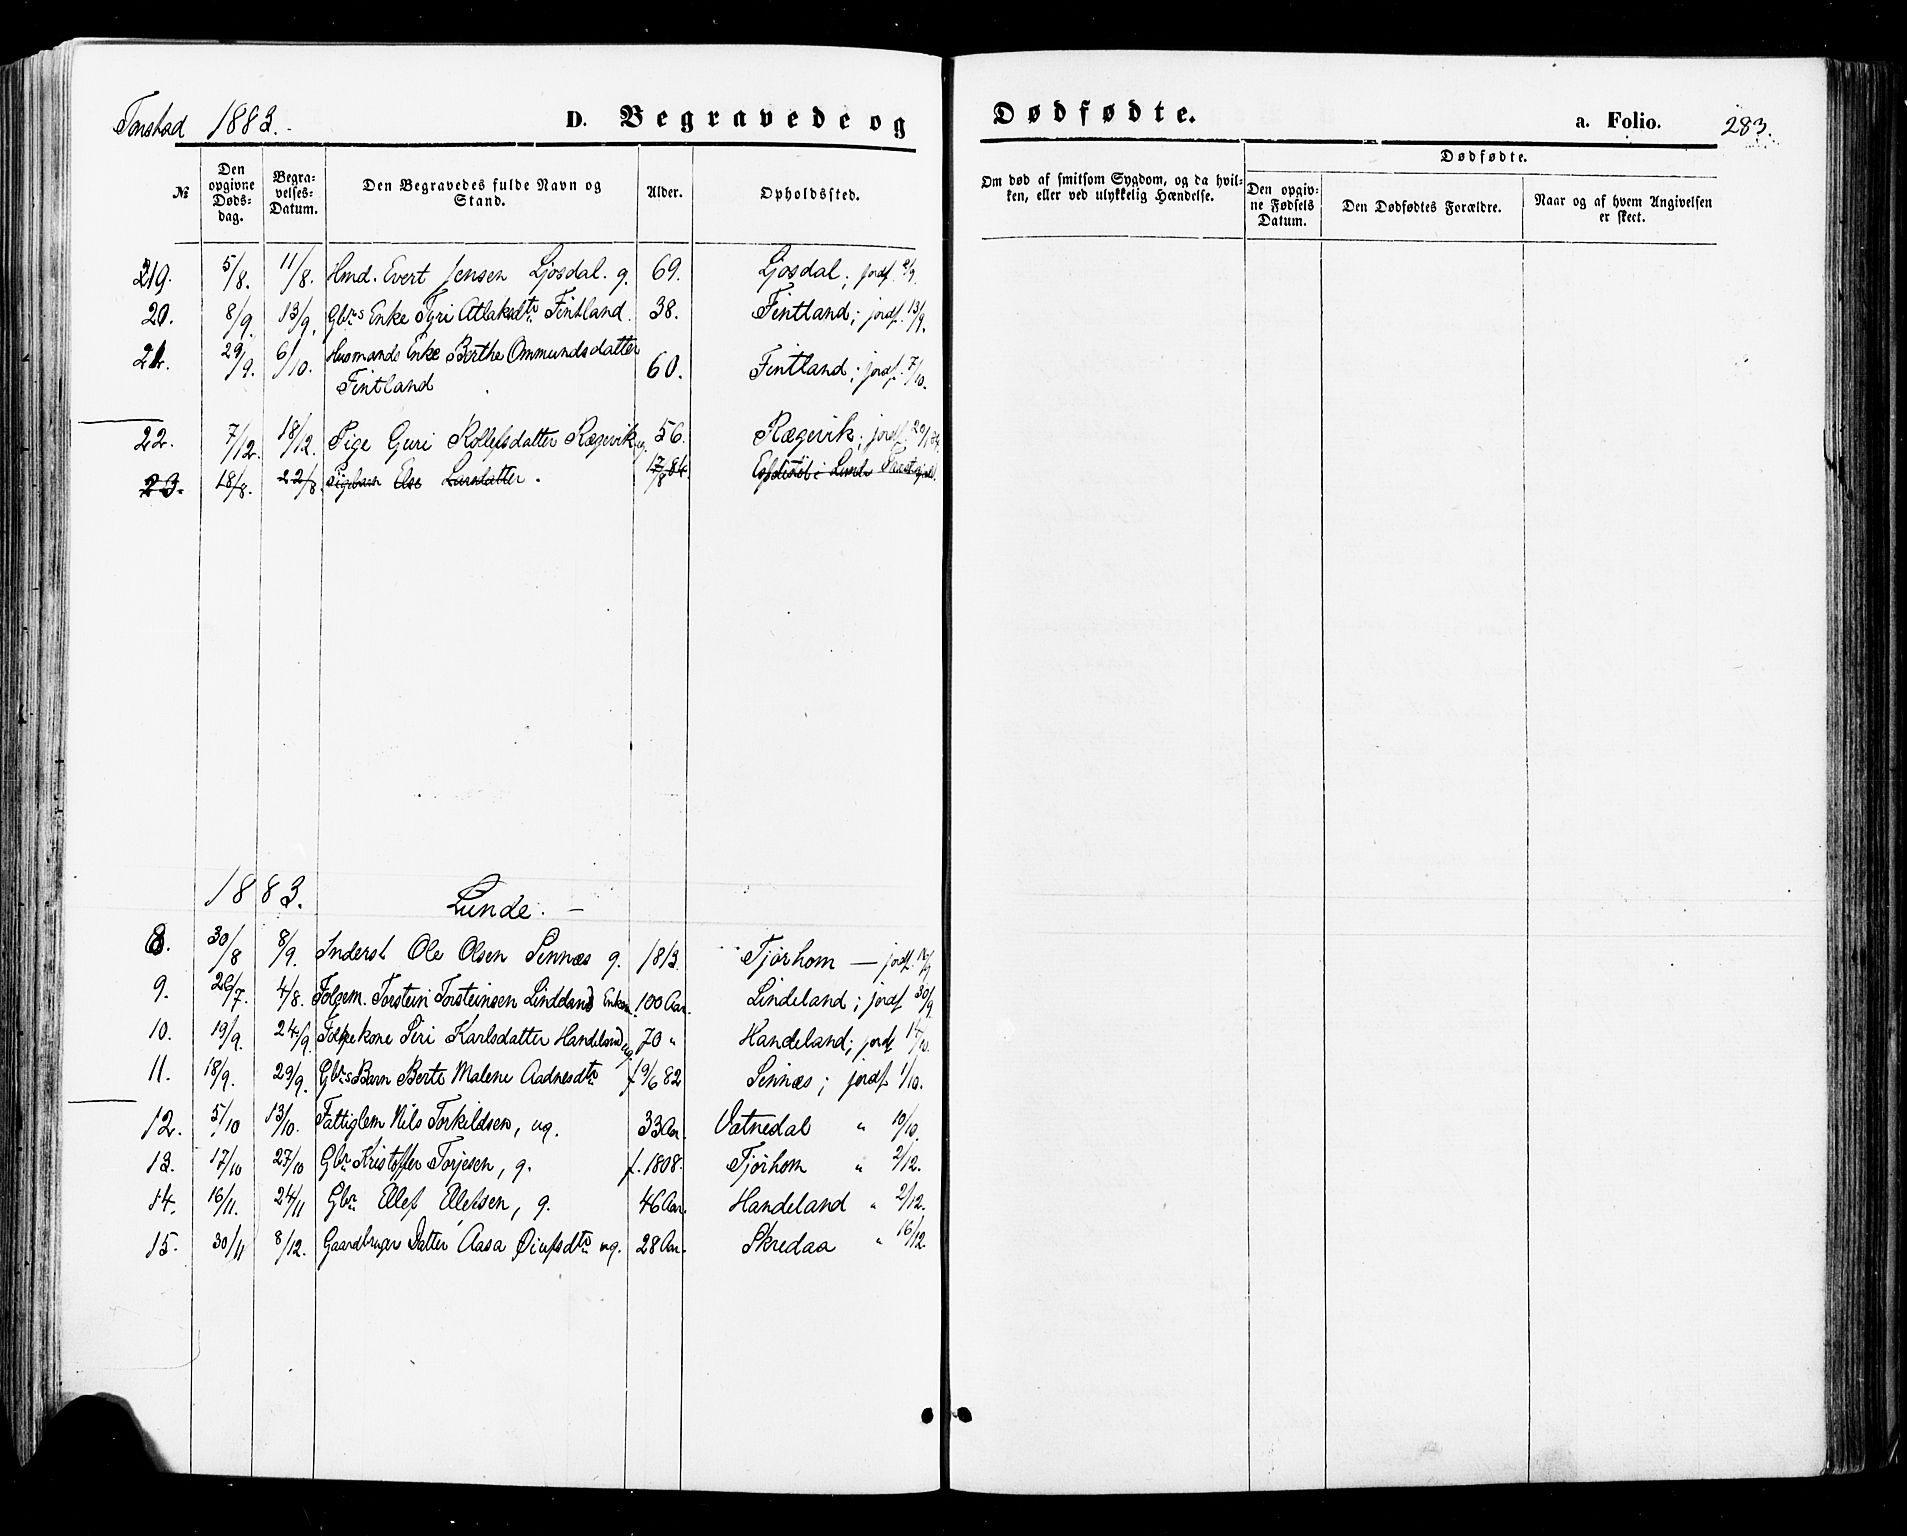 Tonstad 1883. D. Begravede og Dødfødte. a. Folio. 283.
№ Den opgivne Døds-dag. Begra-velses-Datum. Den Begravedes fulde Navn og Stand. Alder. Opholdssted. Om død af smitsom Sygdom, og da hvil-ken, eller ved ulykkelig Hændelse. Dødfødte. Den opgiv-ne Fødsels Datum. Den Dødfødtes Forældre. Naar og af hvem Angivelsen er skeet.
19. 5/8. 11/8. Hmd. Evert Jensen Ljosdal. g. 69. Ljosdal; jordf. 2/9.
20. 8/9. 13/9. Gbrs Enke Tyri Atlaksdtr Fintland. 38. Fintland; jordf. 13/9.
21. 29/9. 6/10. Husmands Enke Berthe Ommundsdatter
Fintland 60. Fintland; jordf. 7/10.
22. 7/12. 18/12. Pige Guri Rollefsdatter Rægevik ug. 56. Rægevik; jordf. 20/1 84.
23. 18/8. 22/8. Else Larsdatter. 17/8 84. i Lunde
1883. Lunde. —
8. 30/8 8/9. Inderst Ole Olsen Sinnæs g. 1813. Tjørhom — jordf.
9. 26/7. 4/8. Folgem. Torstein Torsteinsen Lindeland Enkem. 100 Aar. Lindeland; jordf 30/9.
10. 19/9. 24/9. Folgekone Siri Karlsdatter Handeland ug. 70 " Handeland; jordf 14/10.
11. 18/9. 29/9. Gbrs Barn Berte Malene Aadnesdtr f 9/6 82 Sinnæs; jordf 1/10.
12. 5/10 13/10. Fattiglem Nils Torkildsen, ug. 33 Aar. Vatnedal " 10/10.
13. 17/10 27/10 Gbr Kristoffer Torjesen, g. f. 1808. Tjørhom " 2/12.
14. 16/11. 24/11 Gbr Ellef Ellefsen, g. 46 Aar. Handeland " 2/12.
15. 30/11 8/12. Gaardbruger Datter Aasa Øiufsdtr ug. 28 Aar. Skredaa " 16/12.